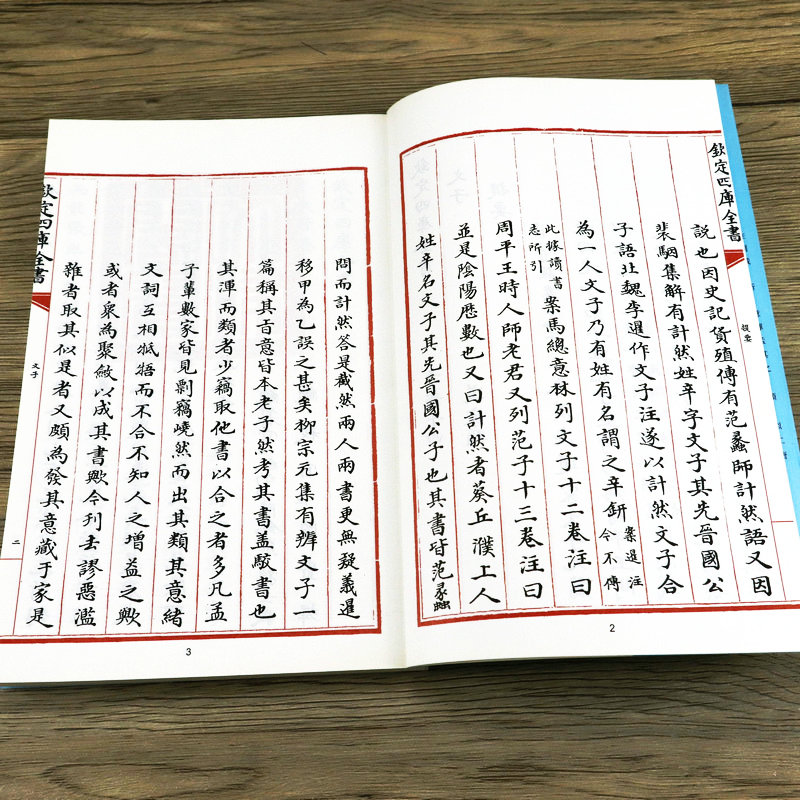 欽定四庫全書
提要
說也因史記貨殖傳有范蠡師計然語又因
裴駰集解有計然姓辛字文子其先晉國公
子語北魏李暹作文子注遂以計然文子合
為一人文子乃有姓有名謂之辛鈃案暹注今不傳
此據讀書志所引案馬總意林列文子十二卷注曰
周平王時人師老君又列范子十三卷注曰
並是陰陽歷數也又曰計然者葵丘濮上人
姓辛名文子其先晉國公子也其書皆范蠡
2
問而計然答是截然兩人兩書更無疑義暹
移甲為乙誤之甚矣柳宗元集有辨文子一
篇稱其旨意皆本老子然考其書盖駁書也
其渾而類者少竊取他書以合之者多凡孟
子輩數家皆見剽竊嶢然而出其類其意緒
文詞互相牴牾而不合不知人之增益之歟
或者衆為聚斂以成其書歟今刊去謬惡濫
雜者取其似是者又頗為發其意藏于家是
欽定四庫全書
文子
二
3